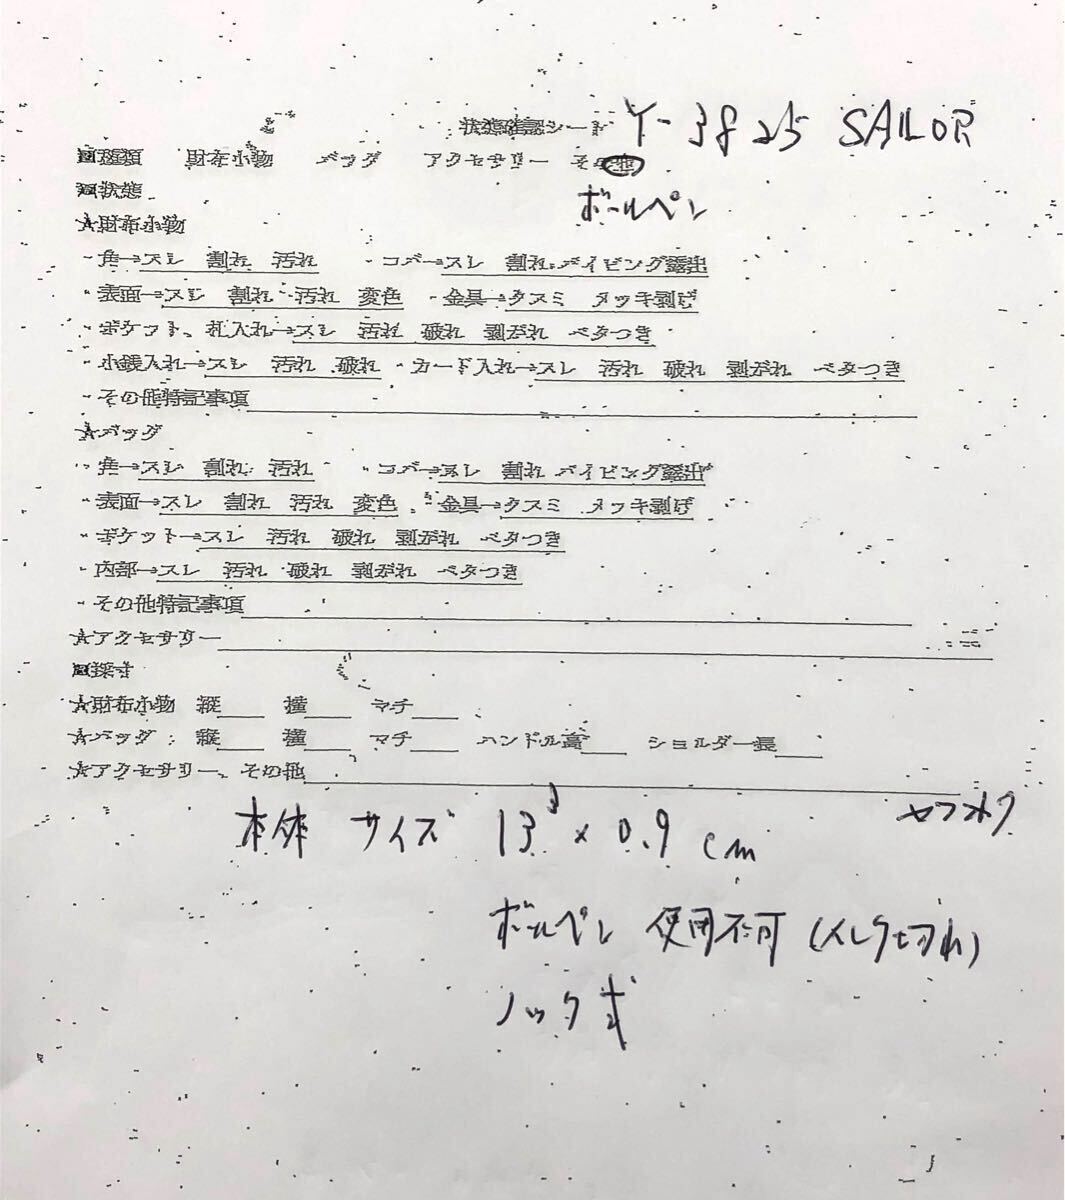 状態確認シート Y-3825 SAILOR
■種類 財布小物 バッグ アクセサリー その他
ボールペン
■状態
★財布小物
・角→スレ 割れ 汚れ ・コバ→スレ 割れ パイピング露出
・表面→スレ 割れ 汚れ 変色 ・金具→クスミ メッキ剥げ
・ポケット、札入れ→スレ 汚れ 破れ 剥がれ ベタつき
・小銭入れ→スレ 汚れ 破れ ・カード入れ→スレ 汚れ 破れ 剥がれ ベタつき
・その他特記事項
★バッグ
・角→スレ 割れ 汚れ ・コバ→スレ 割れ パイピング露出
・表面→スレ 割れ 汚れ 変色 ・金具→クスミ メッキ剥げ
・ポケット→スレ 汚れ 破れ 剥がれ ベタつき
・内部→スレ 汚れ 破れ 剥がれ ベタつき
・その他特記事項
★アクセサリー
■採寸
★財布小物 縦 横 マチ
★バッグ 縦 横 マチ ハンドル高 ショルダー長
★アクセサリー、その他
ヤフオク
本体 サイズ 13 × 0.9 cm
ボールペン 使用不可 (インク切れ)
ノック式